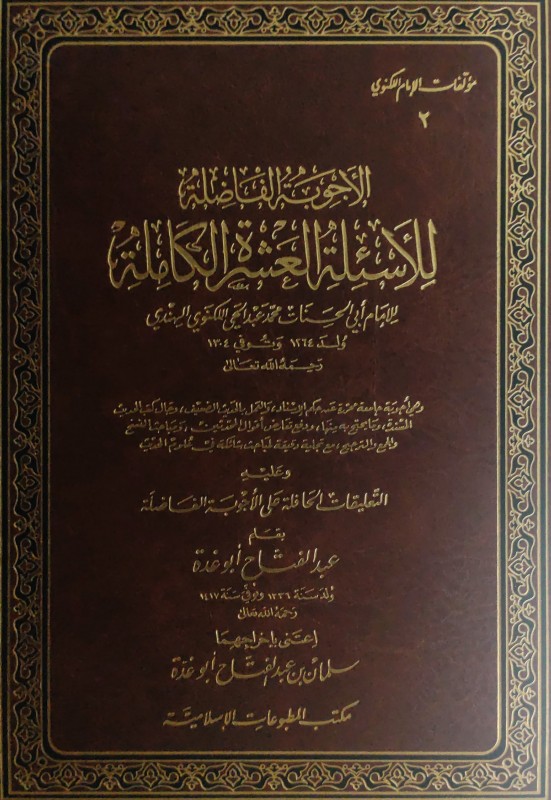 مؤلفات الإمام اللكنوي
٢
الأجوبة الفاضلة
للأسئلة العشرة الكاملة
للإمام أبي الحسنات محمد عبد الحي اللكنوي الهندي
ولد ١٢٦٤ وتوفي ١٣٠٤
رحمه الله تعالى
وهي أجوبة جامعة محررة عن حكم الإسناد، والعمل بالحديث الضعيف، وحال كتب الحديث
المسندة، وما يحتج به منها، ودفع تعارض أقوال المحدثين، ومباحث النسخ
والجمع والترجيح، مع تجلية دقيقة لمباحث شائكة في علوم الحديث
وعليه
التعليقات الحافلة على الأجوبة الفاضلة
بقلم
عبد الفتاح أبو غدة
ولد سنة ١٣٣٦ وتوفي سنة ١٤١٧
رحمه الله تعالى
اعتنى بإخراجهما
سلمان بن عبد الفتاح أبو غدة
مكتب المطبوعات الإسلامية